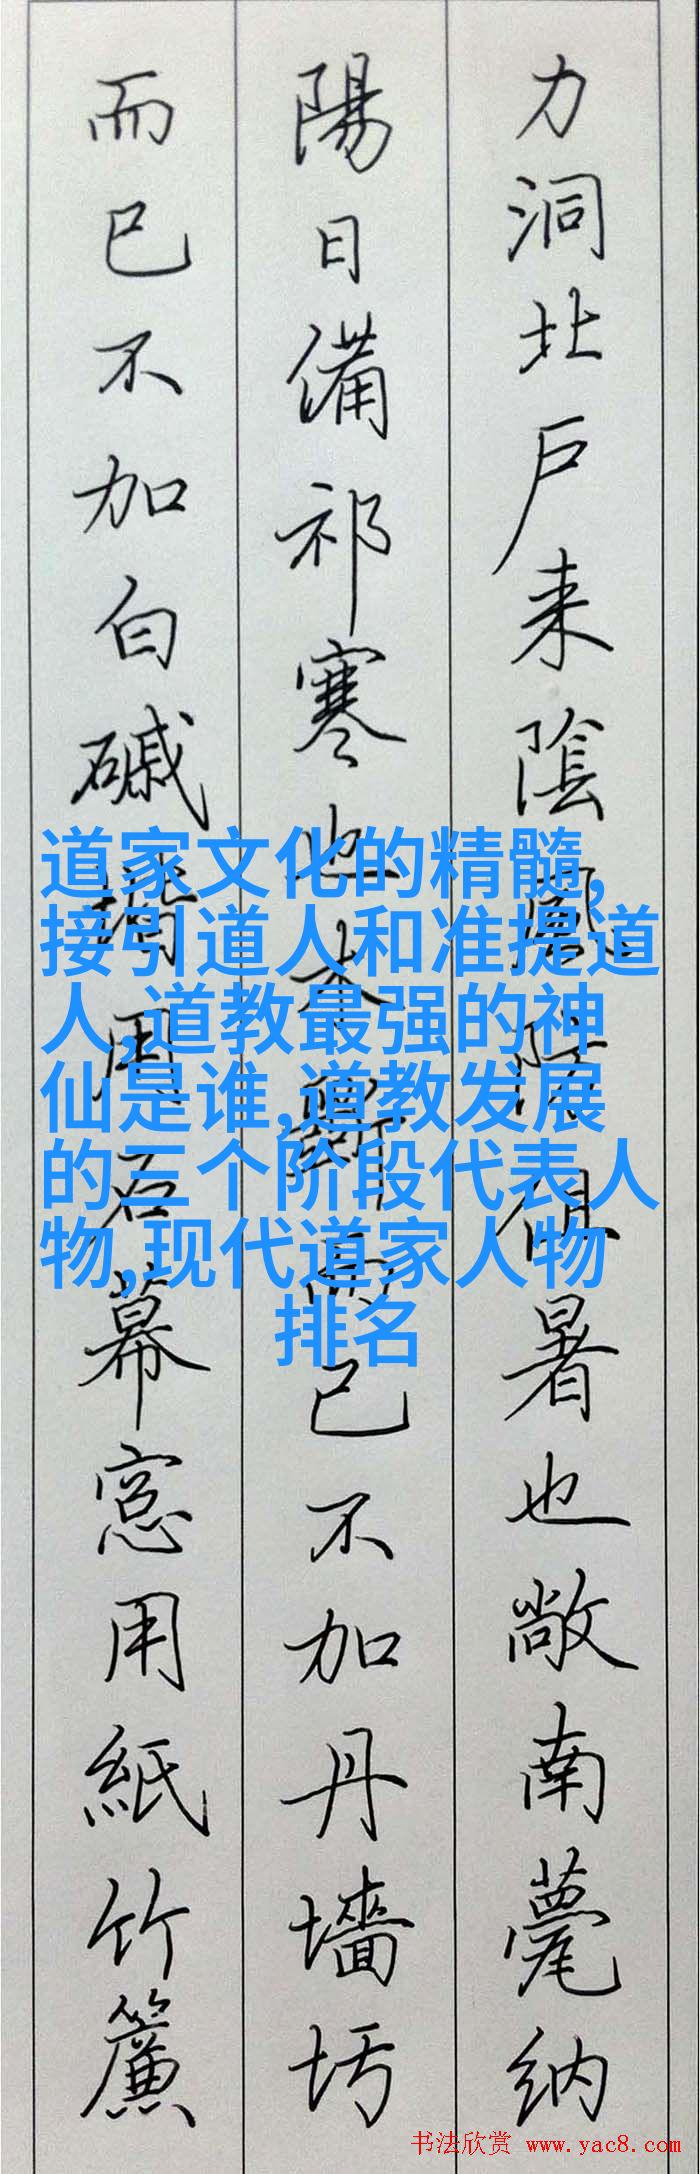 力洞北户来陰風防徂暑也敞南甍纳
陽日備祁寒也木斲而已不加丹墻圬
而已不加白磩堦用石幕窓用紙竹簾
道家文化的精髓,
接引道人和准提道
人,道教最强的神
仙是谁,道教发展
的三个阶段代表人
物,现代道家人物
排名
书法欣赏 www.yac8.com